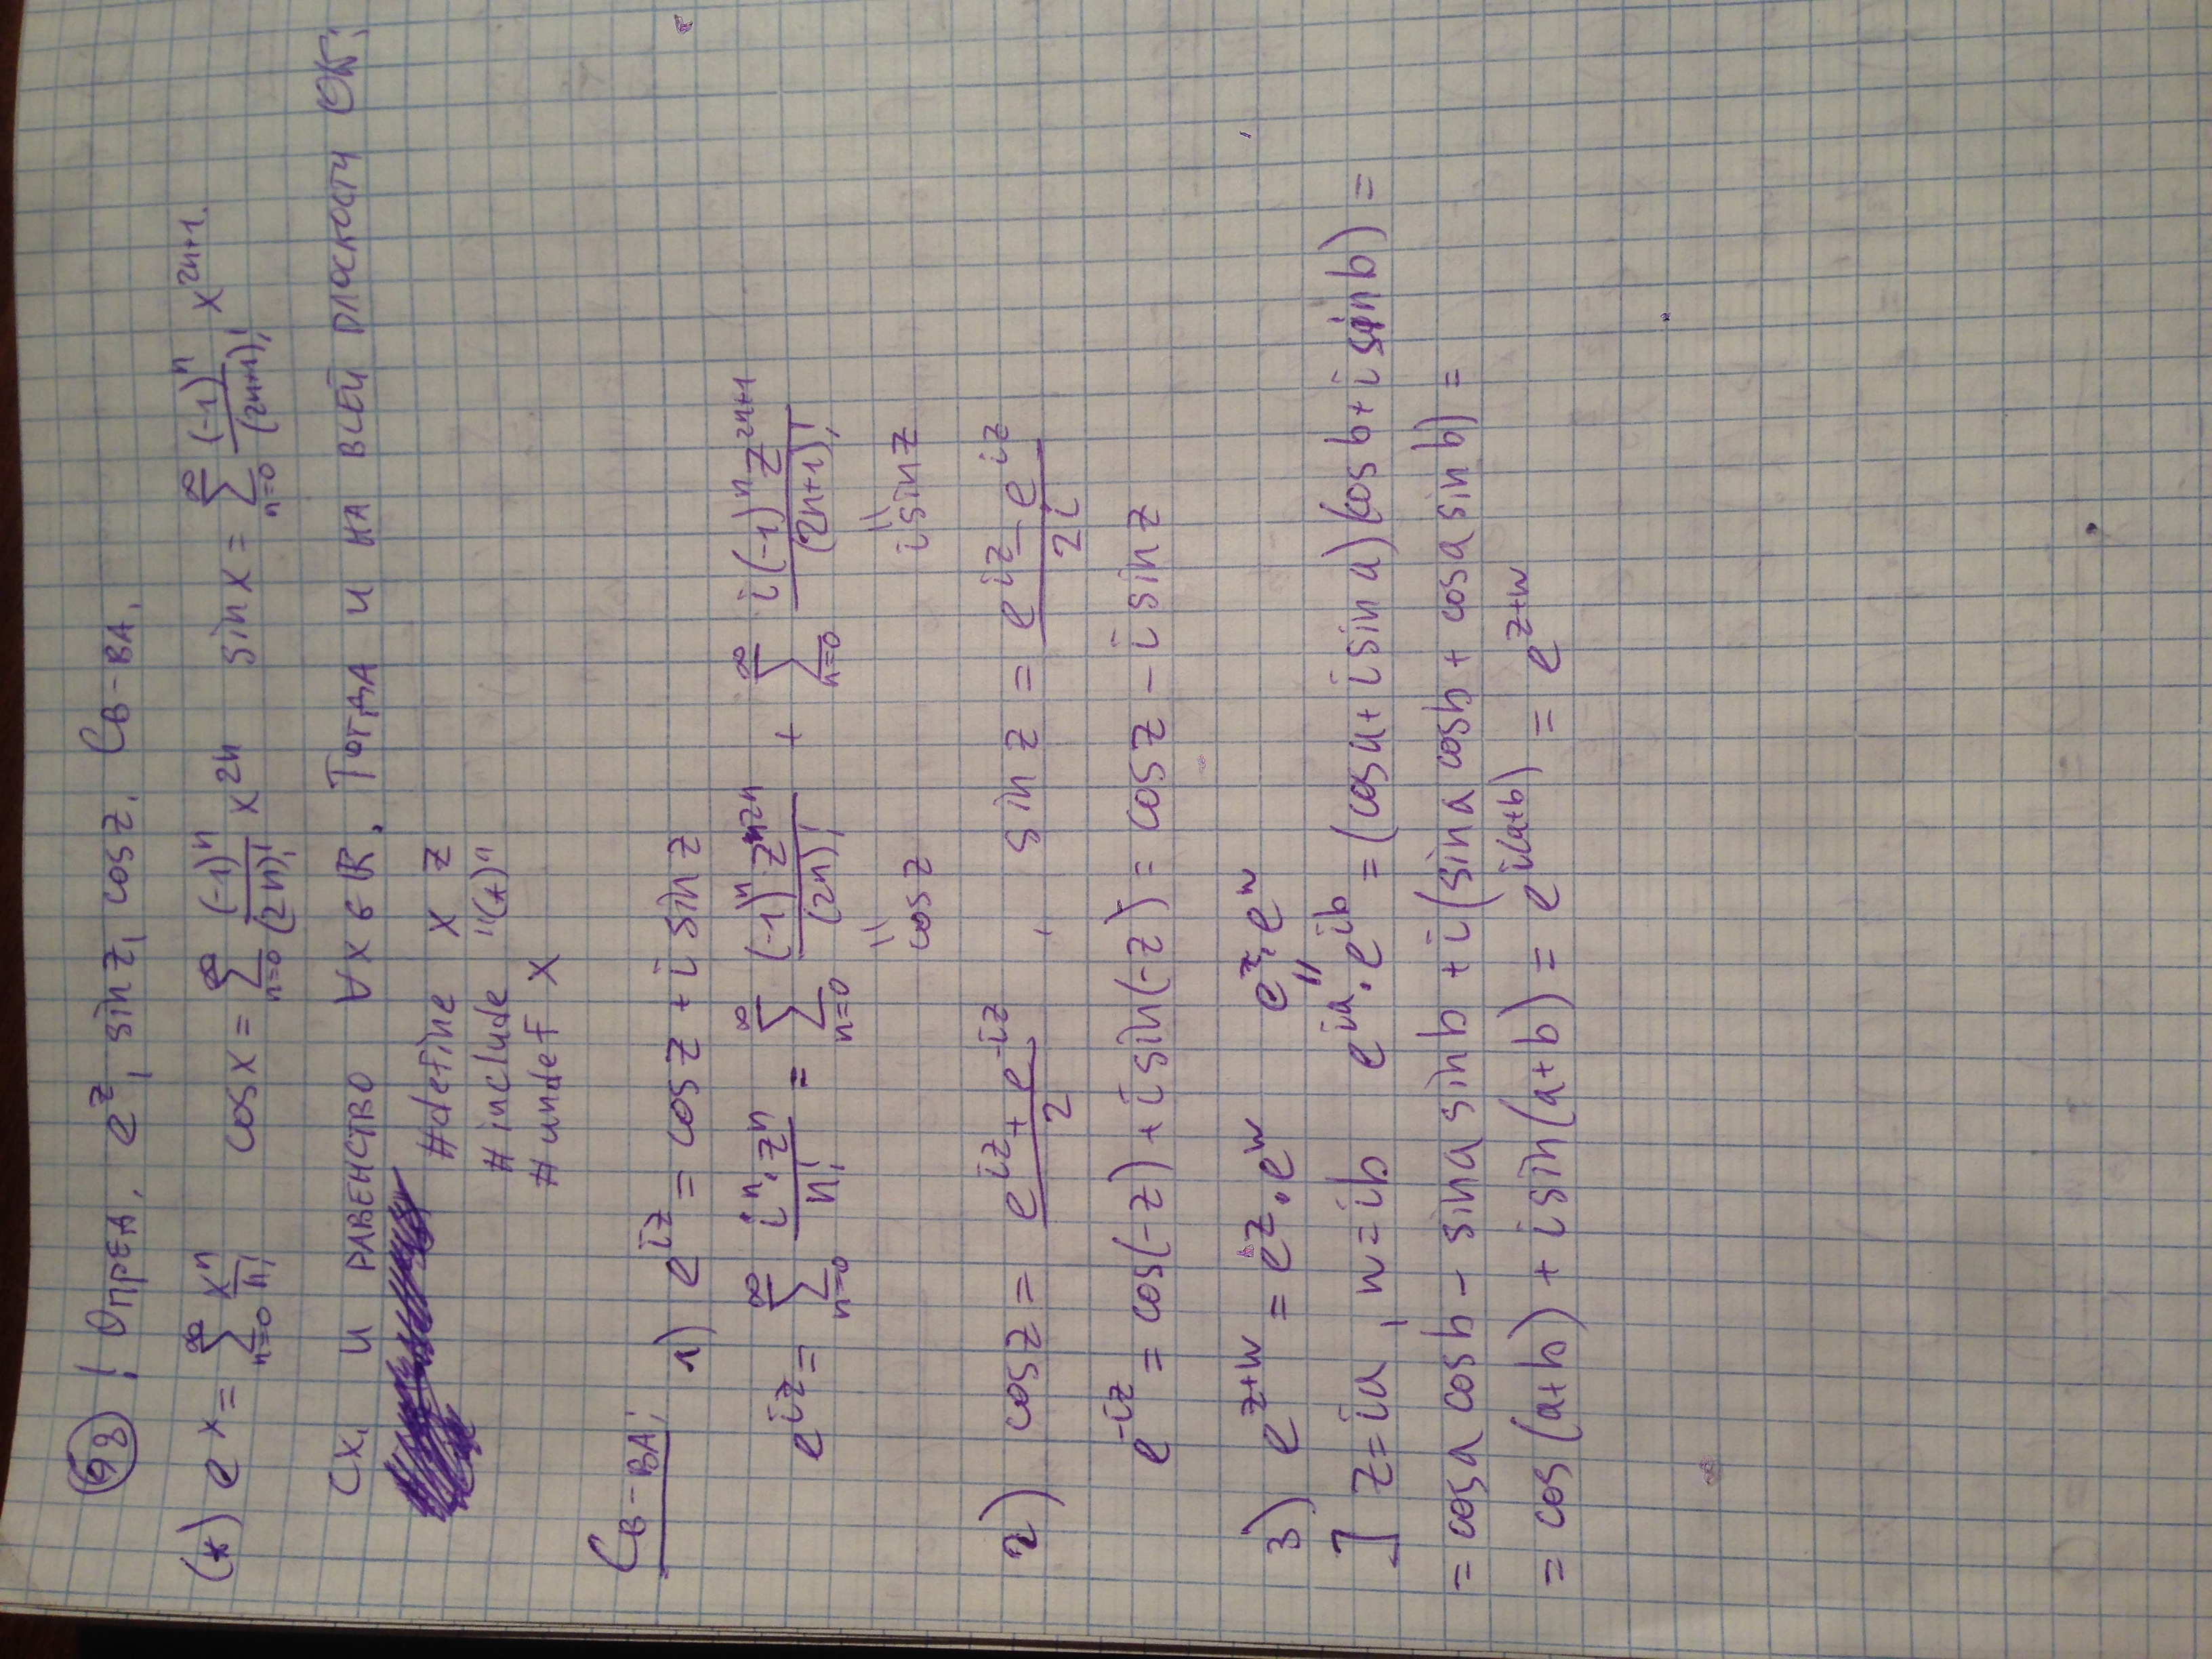 98 ! Опред. e^z, sin z, cos z. Св-ва.
(*) e^x = ∑_{n=0}^{∞} x^n/n! cos x = ∑_{n=0}^{∞} (-1)^n/(2n)! x^{2n} sin x = ∑_{n=0}^{∞} (-1)^n/(2n+1)! x^{2n+1}.
Сх. и равенство ∀x∈ℝ. Тогда и на всей плоскости ОК:
#define x z
#include "(*)"
#undef x
Св-ва:
1) e^{iz} = cos z + i sin z
e^{iz} = ∑_{n=0}^{∞} i^n·z^n/n! = ∑_{n=0}^{∞} (-1)^n z^{2n}/(2n)! + ∑_{n=0}^{∞} i(-1)^n z^{2n+1}/(2n+1)!
= =
cos z i sin z
2) cos z = (e^{iz} + e^{-iz})/2 , sin z = (e^{iz} - e^{iz})/2i
e^{-iz} = cos(-z) + i sin(-z) = cos z - i sin z
3) e^{z+w} = e^z · e^w e^z · e^w
=
] z = ia, w = ib e^{ia} · e^{ib} = (cos a + i sin a)(cos b + i sin b) =
= cos a cos b - sin a sin b + i(sin a cos b + cos a sin b) =
= cos(a+b) + i sin(a+b) = e^{i(a+b)} = e^{z+w}